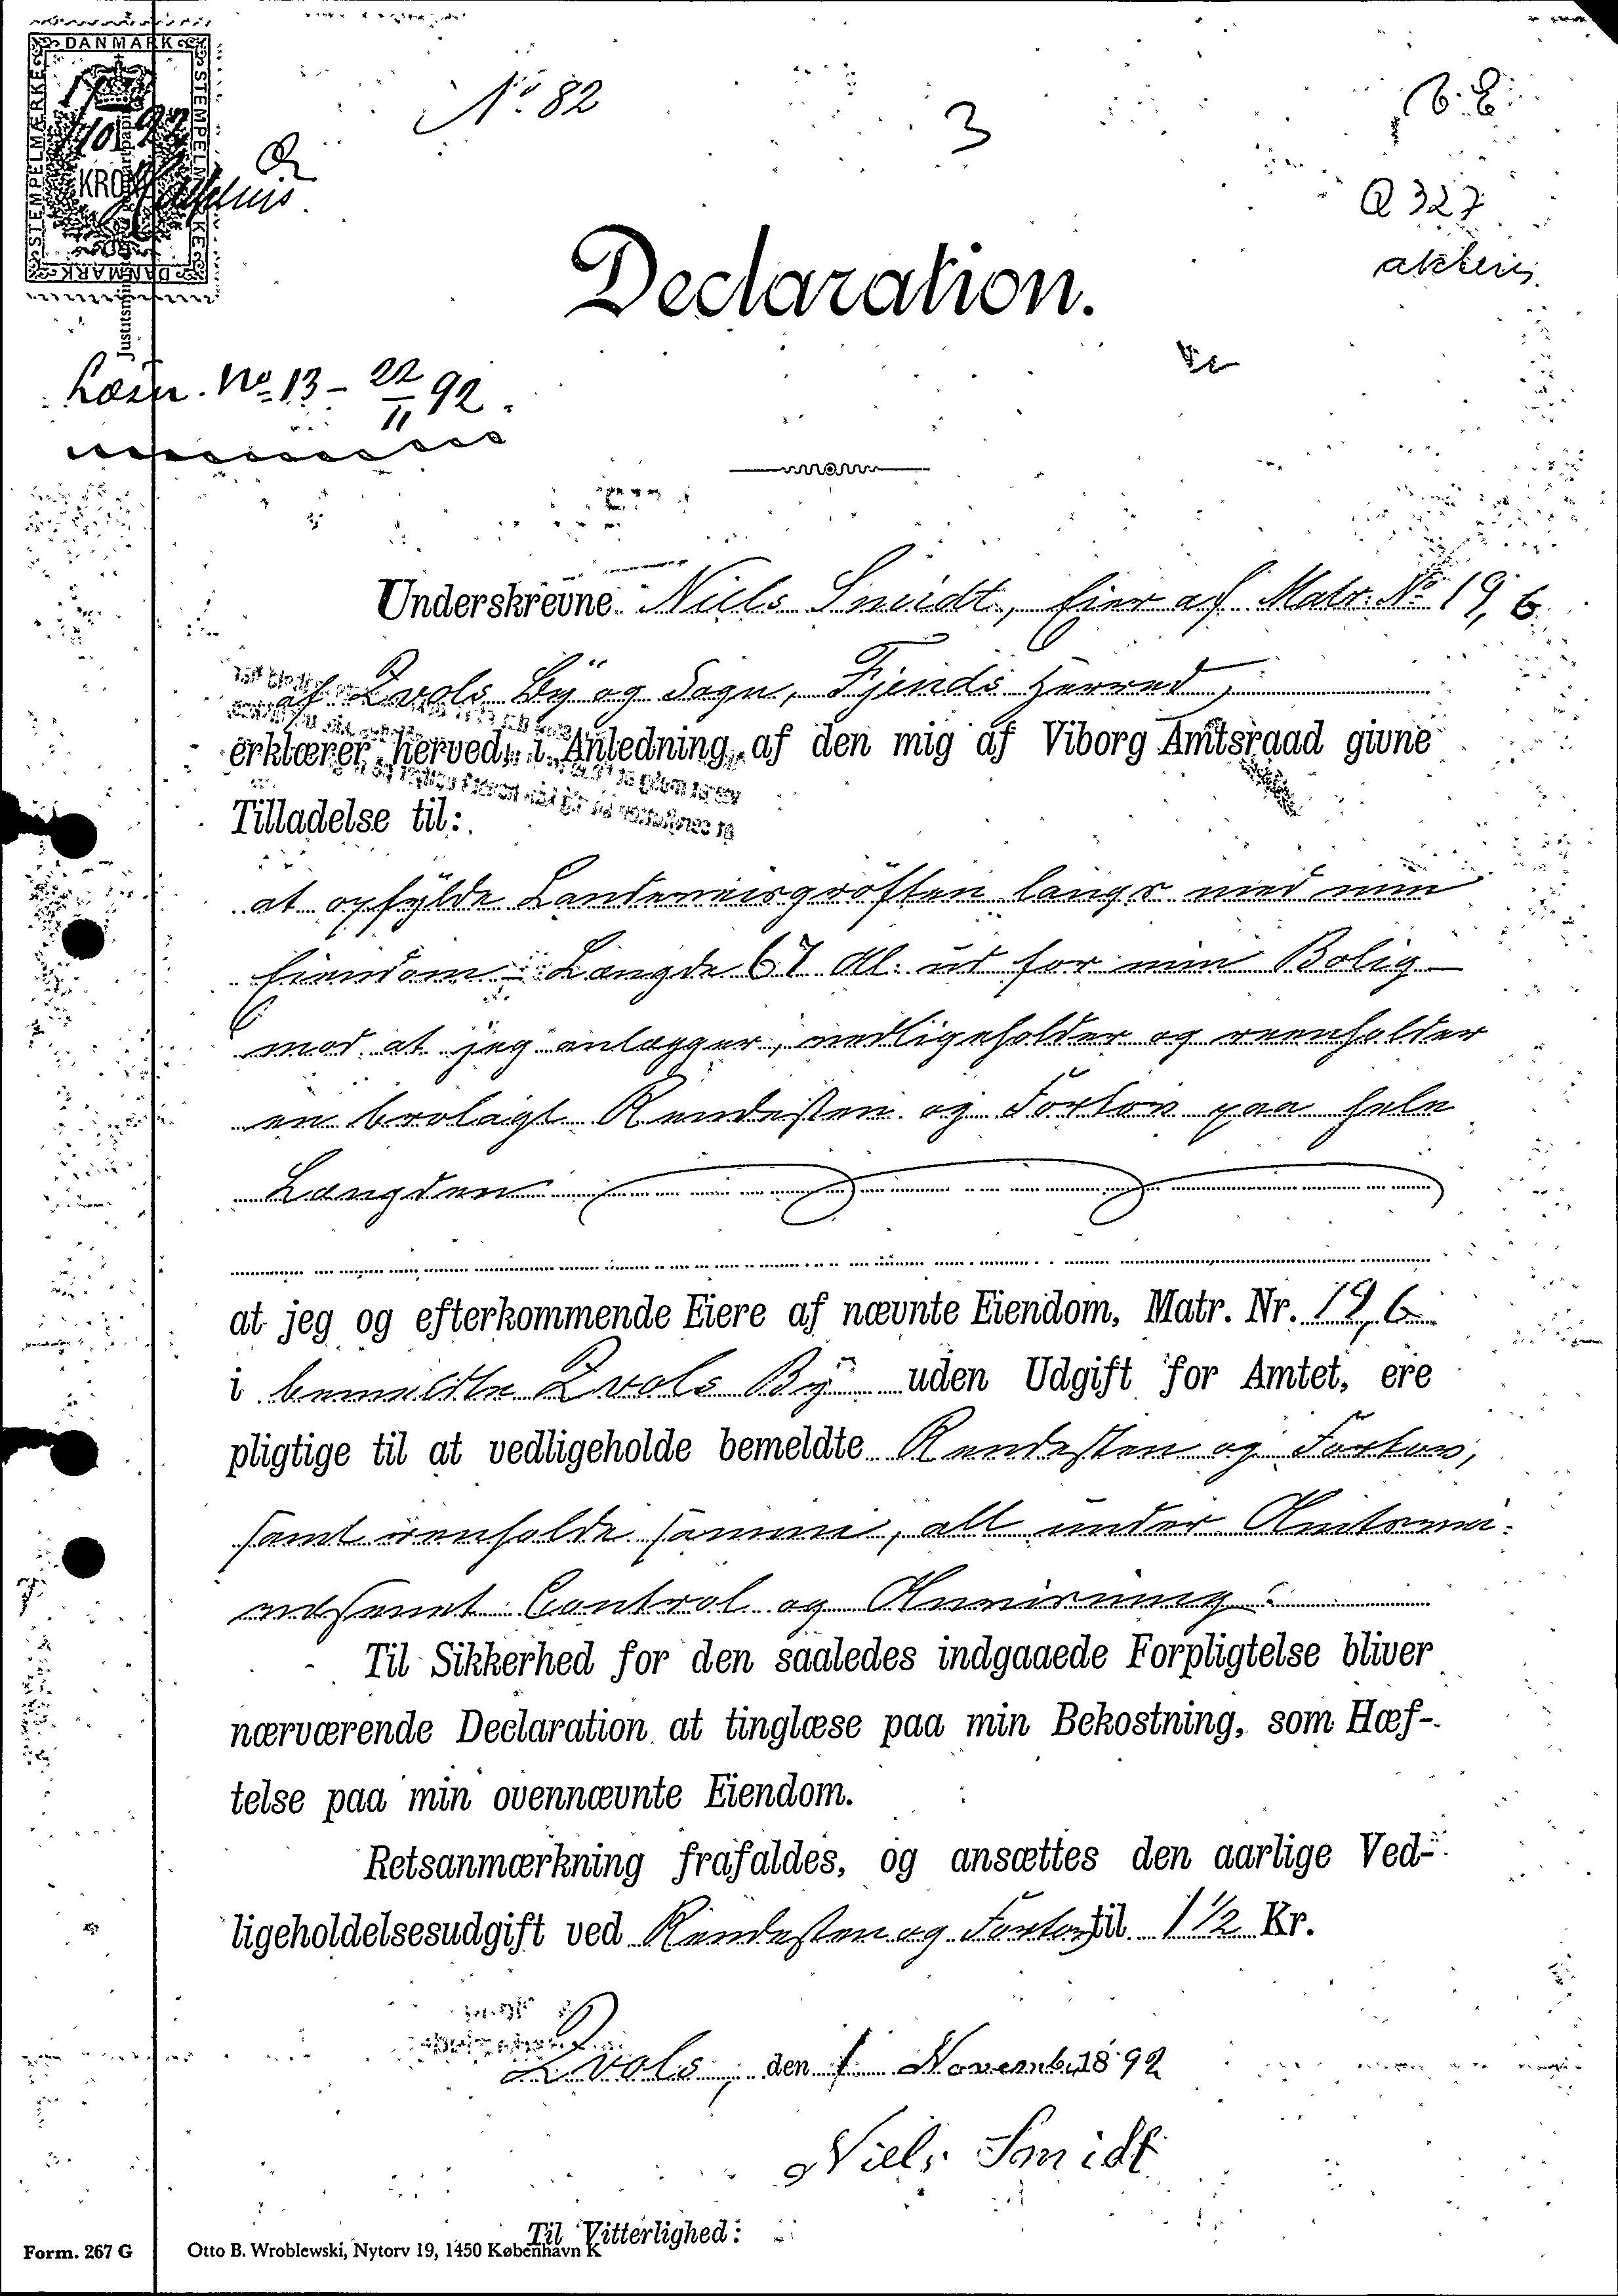 DANMARK
STEMPELMÆRKE
KRO
No 82
3
Q 327
akteris.
Declaration.
Læsn. No 13 - 22/11 92.
Underskrevne Niels Smidt, Eier af Matr. No 19, b
af Kvols By og Sogn, Fjends Herred,
erklærer herved, i Anledning af den mig af Viborg Amtsraad givne
Tilladelse til:
at opfylde Landeveisgrøften langs med min
Eiendom - Længde 67 Al. ud for min Bolig -
mod at jeg anlægger, vedligeholder og reenholder
en brolagt Rendesten og Fortov paa hele
Længden
at jeg og efterkommende Eiere af nævnte Eiendom, Matr. Nr. 19, b
i bemeldte Kvols By uden Udgift for Amtet, ere
pligtige til at vedligeholde bemeldte Rendesten og Fortov,
samt reenholde samme, alt under Amtsvei-
væsenets Control og Anvisning.
Til Sikkerhed for den saaledes indgaaede Forpligtelse bliver
nærværende Declaration at tinglæse paa min Bekostning, som Hæf-
telse paa min ovennævnte Eiendom.
Retsanmærkning frafaldes, og ansættes den aarlige Ved-
ligeholdelsesudgift ved Rendesten og Fortov til 1 1/2 Kr.
Kvols, den 1 Novemb. 1892
Niels Smidt
Til Vitterlighed:
Form. 267 G
Otto B. Wroblewski, Nytorv 19, 1450 København K